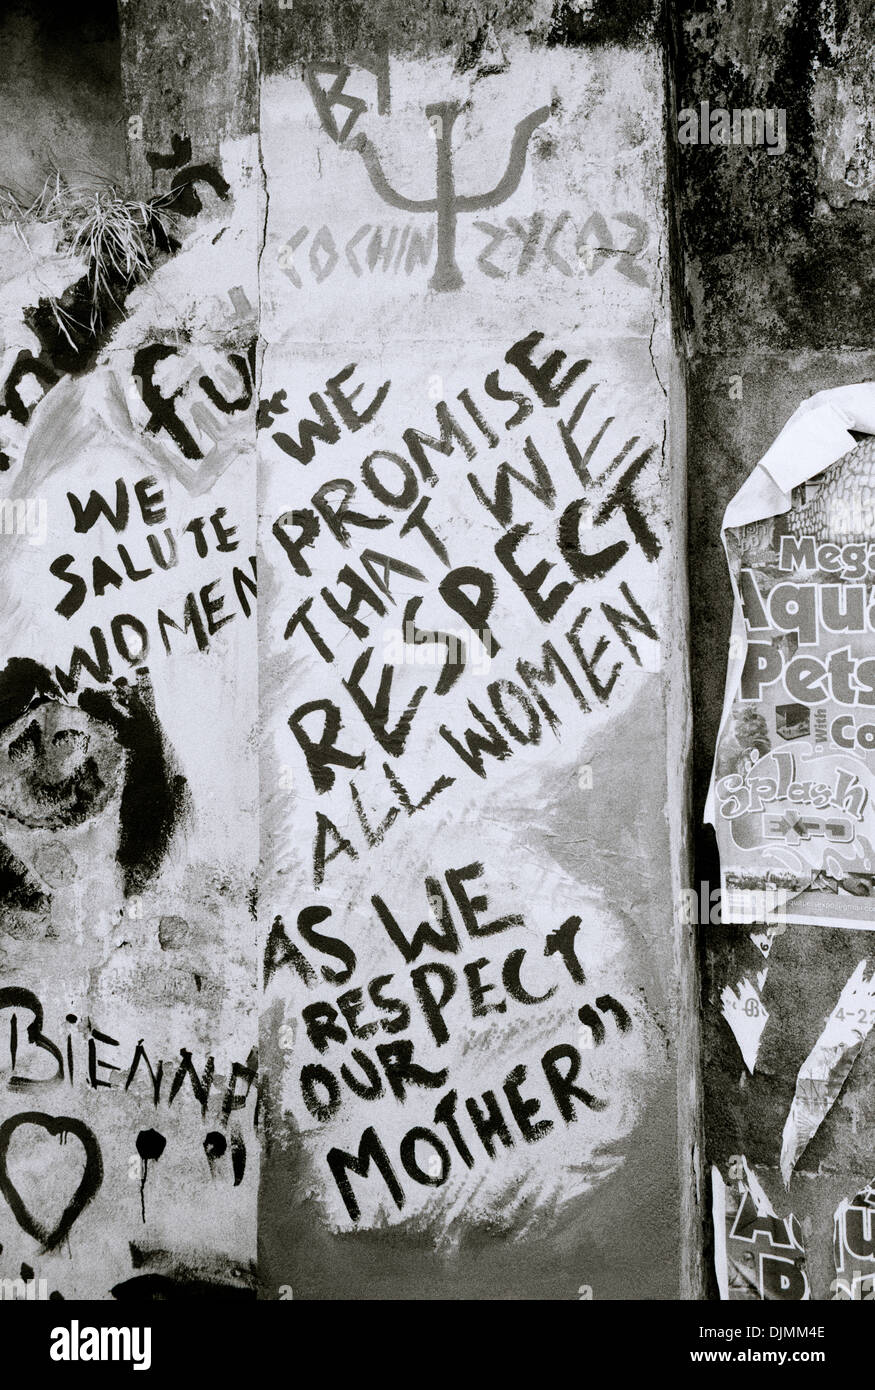 BY
COCHIN ZYCOZ
fu
WE
SALUTE
WOMEN
"WE
PROMISE
THAT WE
RESPECT
ALL WOMEN
AS WE
RESPECT
OUR
MOTHER"
BiENNA
Mega
Aqua
Pets
With
Co
Splash
EXPO
4-22
alamy stock photo
DJMM4E
www.alamy.com